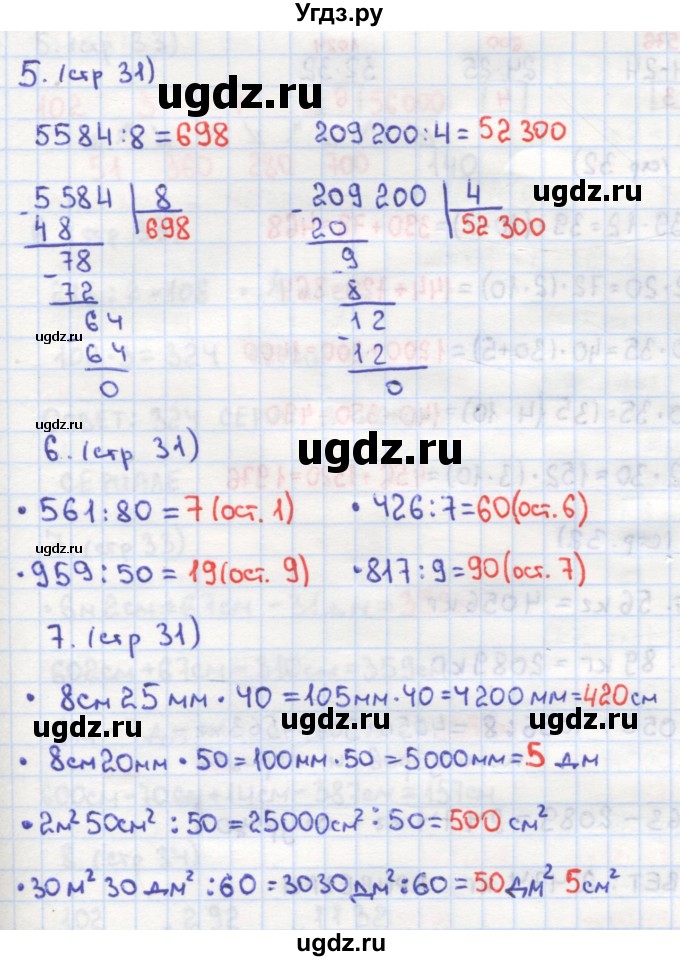 Угдз.ру
5. (стр 31)
ugdz.ru
5584:8=698 209 200:4= 52 300
ugdz.ru
5 584 8 209 200 4
48 698 20 52 300
78 9
72 8
64 12
ugdz.ru
64 12
0 0
ugdz.ru
6. (стр 31)
ugdz.ru
• 561:80 = 7 (ост. 1) • 426:7=60(ост. 6)
ugdz.ru
• 959:50 = 19(ост. 9) • 817:9=90(ост. 7)
7. (стр 31)
• 8см 25 мм • 40 =105мм•40=4200мм=420см
ugdz.ru ugdz.ru
• 8см20мм • 50=100мм•50=5000мм=5 дм
• 2м² 50см² : 50 = 25000см² : 50= 500 см²
ugdz.ru
• 30м² 30 дм² :60 = 3030дм²:60 = 50дм² 5см²
ugdz.ru
ugdz.ru